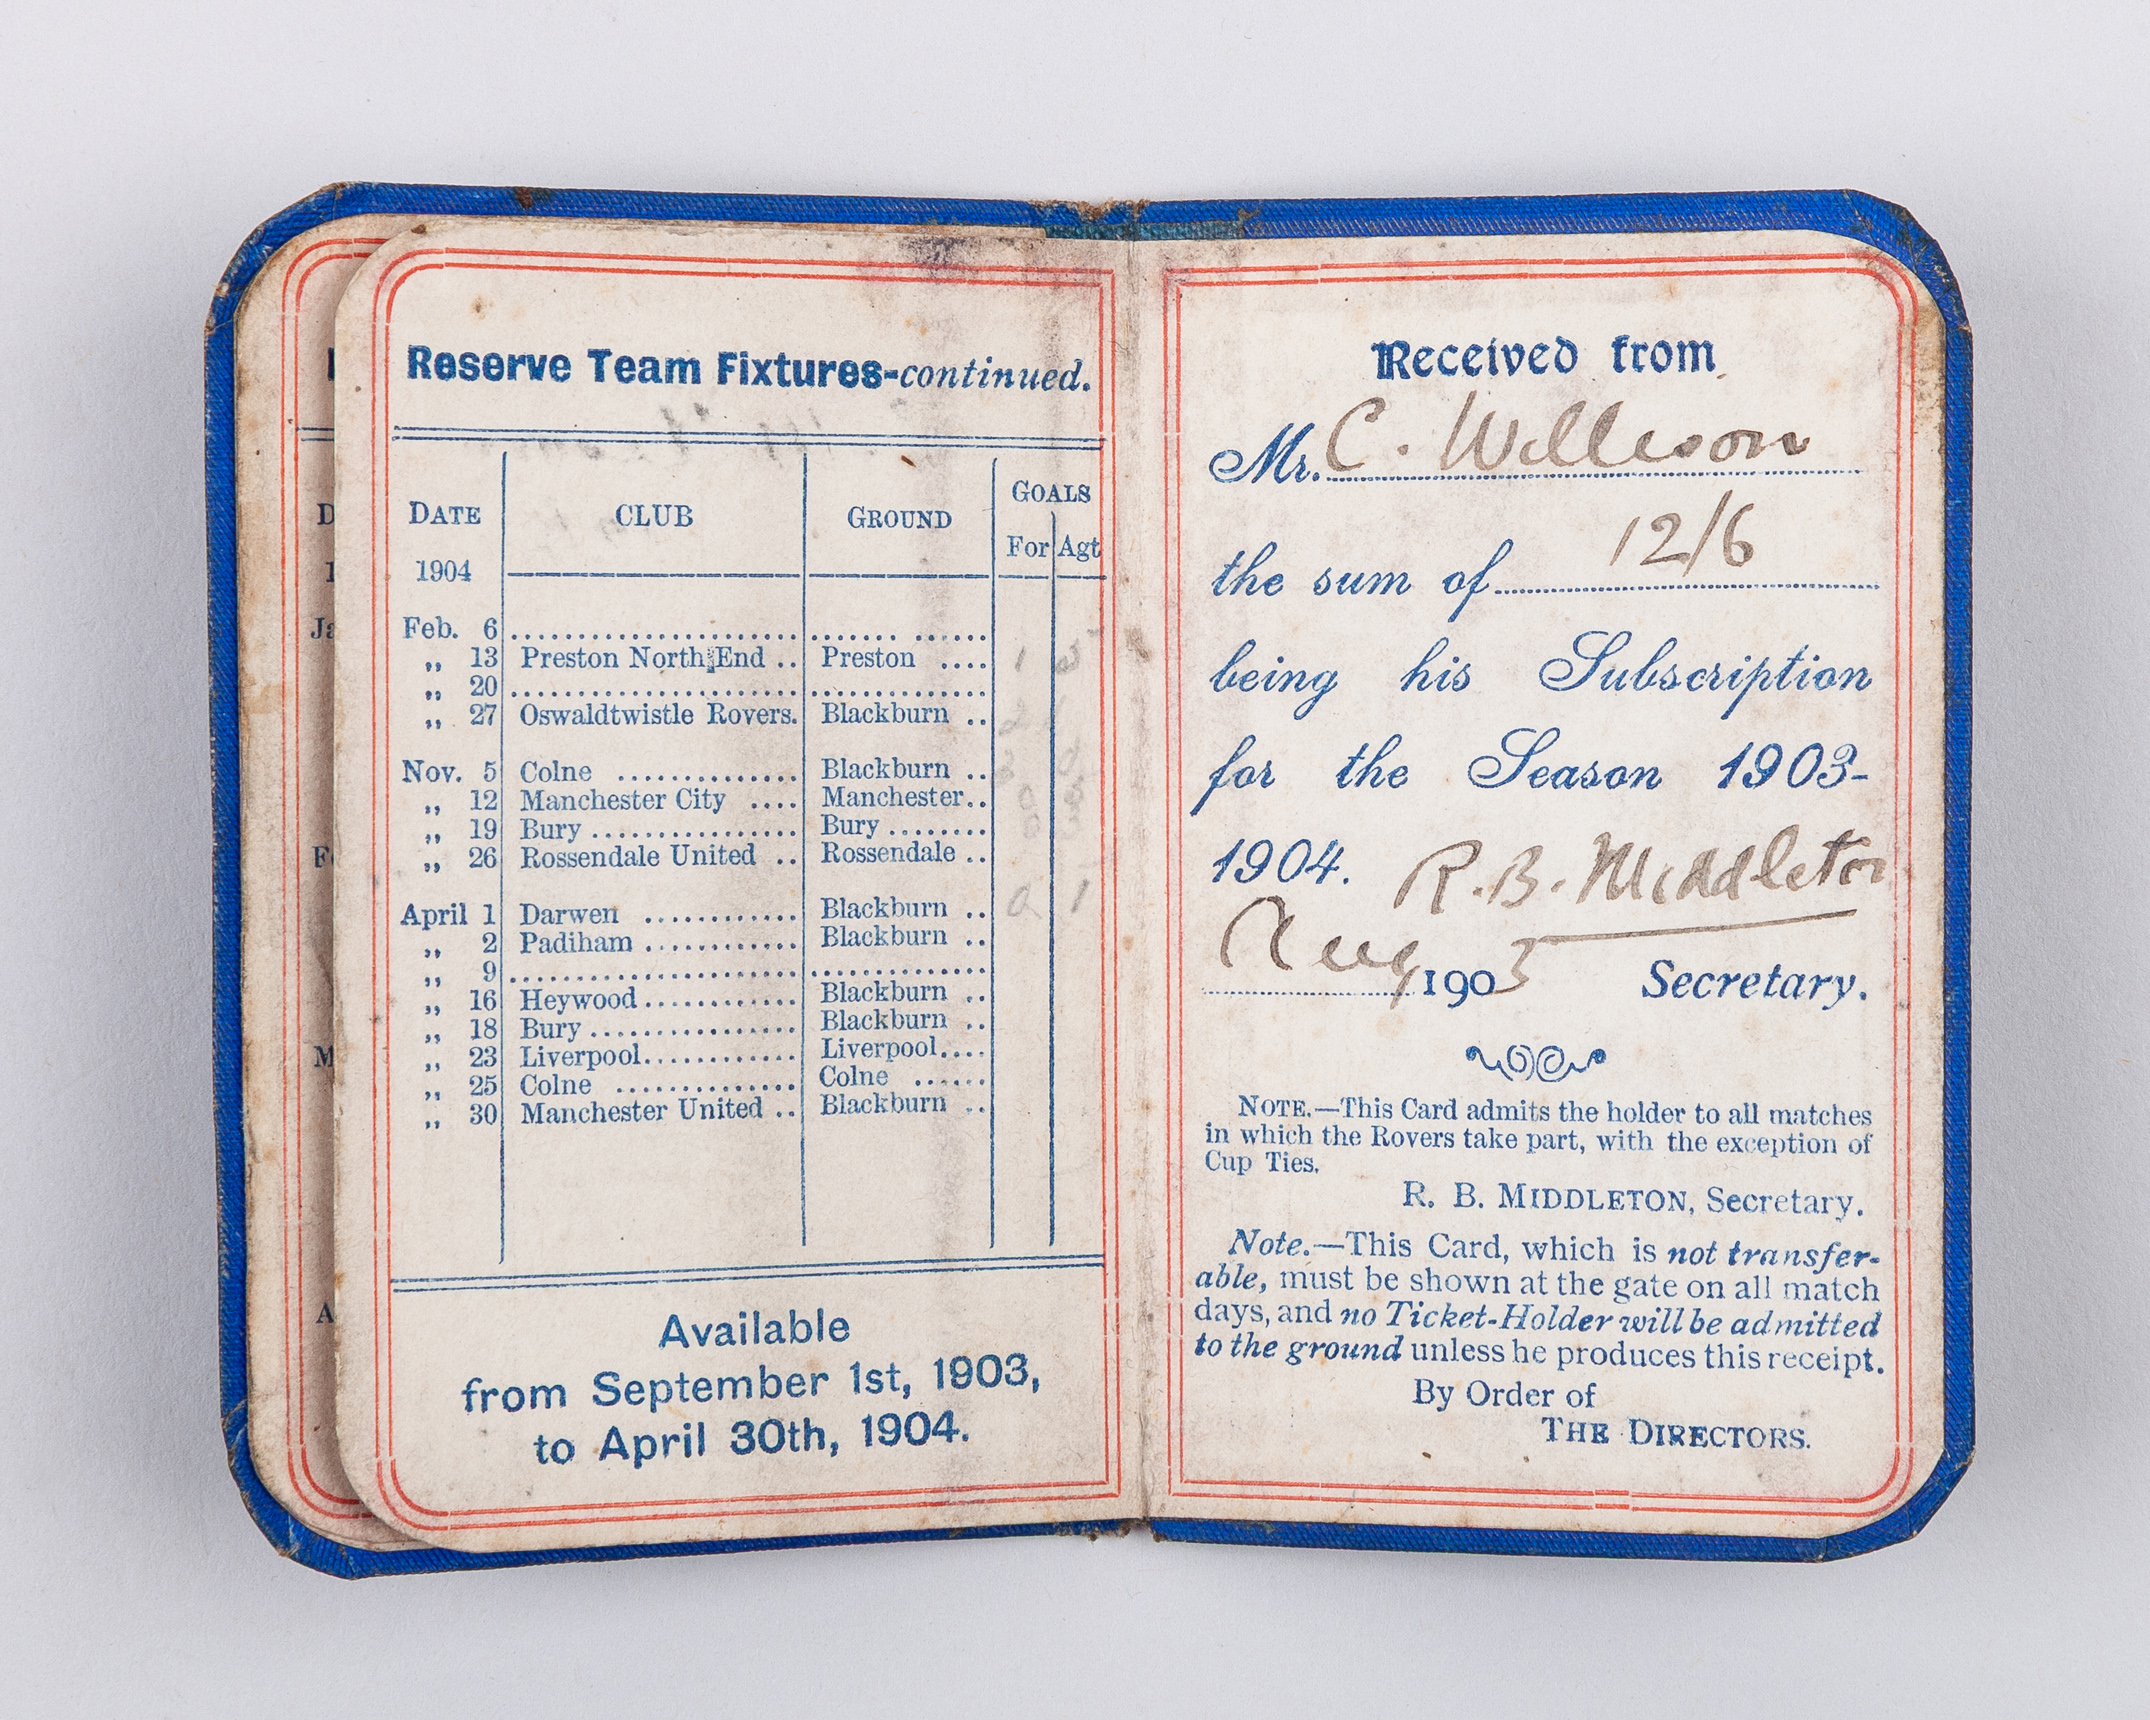 Reserve Team Fixtures-continued.
DATE CLUB GROUND GOALS
For Agt
1904
Feb. 6 ........................ ....... ......
„ 13 Preston North End .. Preston .... 1
„ 20 ........................ ..............
„ 27 Oswaldtwistle Rovers. Blackburn ..
Nov. 5 Colne .............. Blackburn ..
„ 12 Manchester City .... Manchester.. 0
„ 19 Bury ................ Bury ........
„ 26 Rossendale United .. Rossendale ..
April 1 Darwen ............ Blackburn .. 0 1
„ 2 Padiham ............ Blackburn ..
„ 9 ........................ ..............
„ 16 Heywood ............ Blackburn ..
„ 18 Bury ................ Blackburn ..
„ 23 Liverpool............ Liverpool....
„ 25 Colne .............. Colne ......
„ 30 Manchester United .. Blackburn ..
Available
from September 1st, 1903,
to April 30th, 1904.
Received from
Mr. C. Willison
the sum of 12/6
being his Subscription
for the Season 1903-
1904. R. B. Middleton
Aug 1903 Secretary.
NOTE.—This Card admits the holder to all matches
in which the Rovers take part, with the exception of
Cup Ties.
R. B. MIDDLETON, Secretary.
Note.—This Card, which is not transfer-
able, must be shown at the gate on all match
days, and no Ticket-Holder will be admitted
to the ground unless he produces this receipt.
By Order of
THE DIRECTORS.